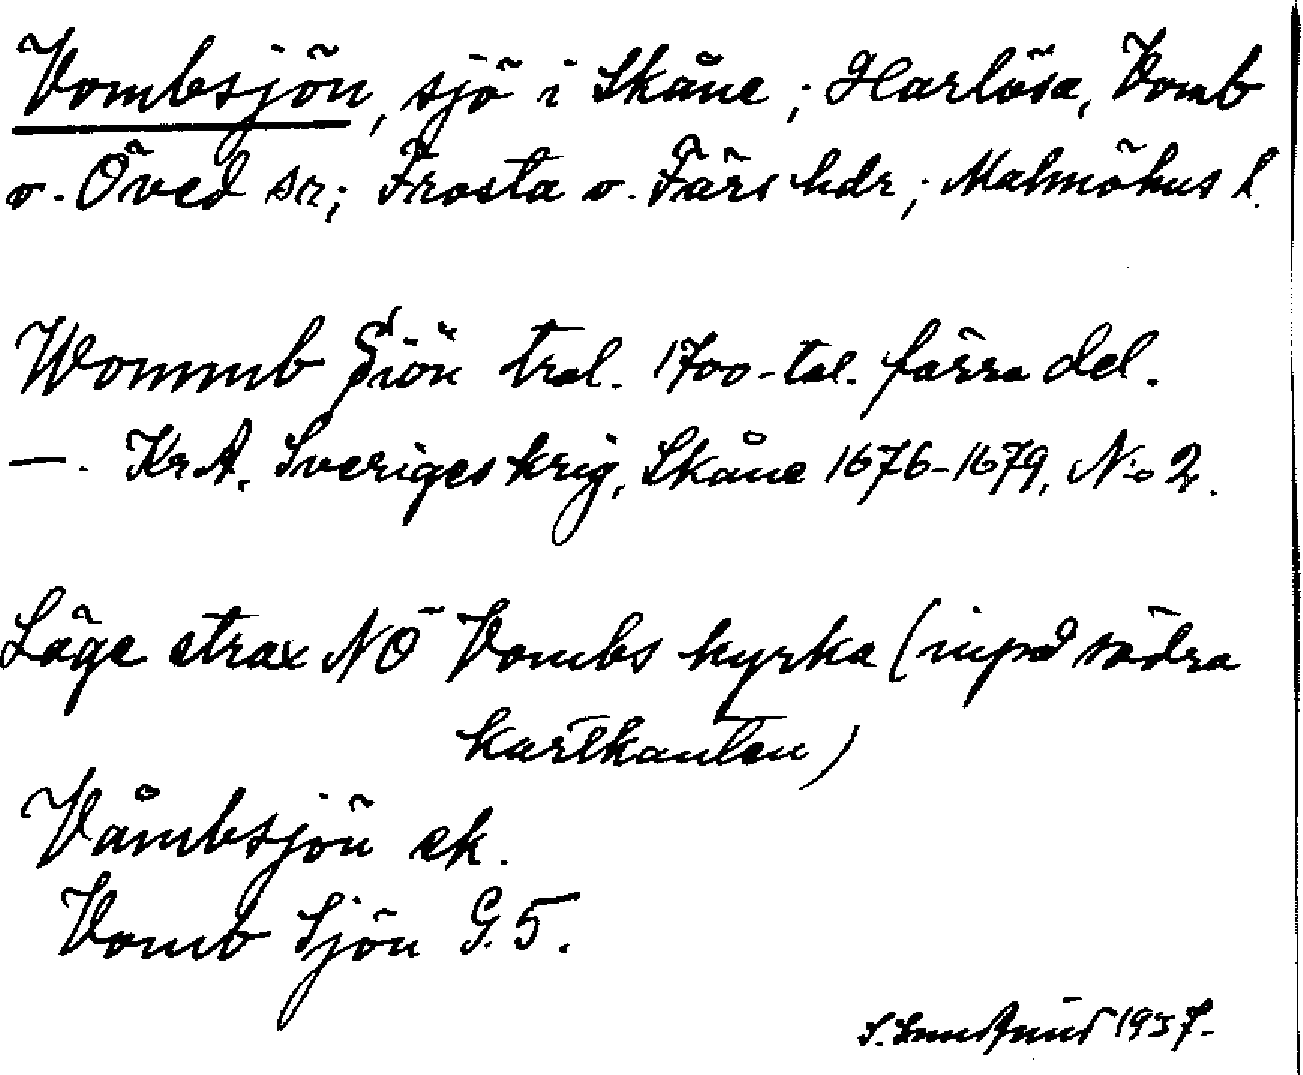 Vombsjön, sjö i Skåne; Harlösa, Vomb
o. Öved sn; Frosta o. Färs hdr; Malmöhus l.
Wommb Siön trol. 1700-tal. förra del.
—. Kr.A. Sveriges krig, Skåne 1676-1679, N:o 2.
Läge strax NÖ Vombs kyrka (inpå södra
kartkanten)
Våmbsjön ek.
Vomb Sjön G.5.
1937.